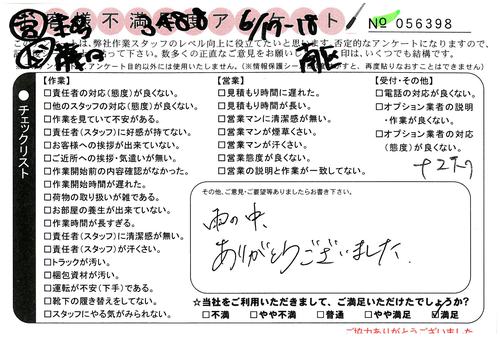 お客様不満足度アンケート
№056398
このアンケートは、弊社作業スタッフのレベル向上に役立てたいと思います。否定的なアンケートになりますので、
チェックリスト
【作業】
□責任者の対応(態度)が良くない。
□他のスタッフの対応(態度)が良くない。
□作業を見ていて不安がある。
□責任者(スタッフ)に好感が持てない。
□お客様への挨拶が出来ていない。
□ご近所への挨拶・気遣いが無い。
□作業開始前の内容確認がなかった。
□作業開始時間が遅れた。
□荷物の取り扱いが雑である。
□お部屋の養生が出来ていない。
□作業時間が長すぎる。
□責任者(スタッフ)に清潔感が無い。
□責任者(スタッフ)が汗くさい。
□トラックが汚い。
□梱包資材が汚い。
□運転が不安(下手)である。
□靴下の履き替えをしてない。
□スタッフにやる気がみられない。
【営業】
□見積もり時間に遅れた。
□見積もり時間が長い。
□営業マンに清潔感が無い。
□営業マンが煙草くさい。
□営業マンが汗くさい。
□営業態度が良くない。
□営業の説明と作業が一致してない。
【受付・その他】
□電話の対応が良くない。
□オプション業者の説明
・作業が良くない。
□オプション業者の対応
(態度)が良くない。
その他、ご意見・ご要望等ありましたらお書き下さい。
雨の中、
ありがとうございました。
☆当社をご利用いただきまして、ご満足いただけたでしょうか?
□不満 □やや不満 □普通 □やや満足 ☑満足
ご協力ありがとうございました